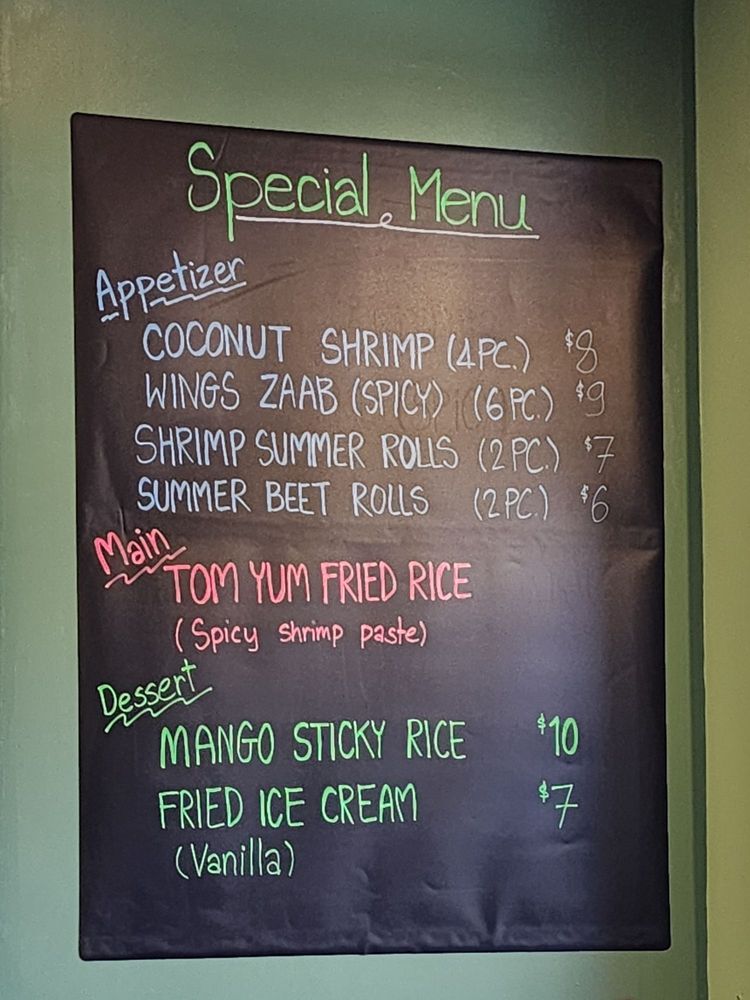 Special Menu
Appetizer
COCONUT SHRIMP (4PC.) $8
WINGS ZAAB (SPICY) (6PC.) $9
SHRIMP SUMMER ROLLS (2PC.) $7
SUMMER BEET ROLLS (2PC.) $6
Main
TOM YUM FRIED RICE
(Spicy shrimp paste)
Dessert
MANGO STICKY RICE $10
FRIED ICE CREAM $7
(Vanilla)